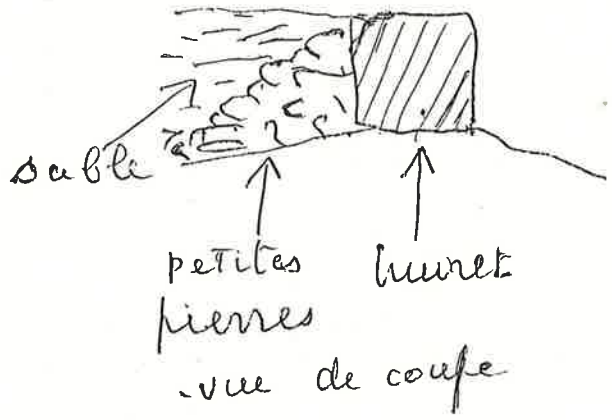 sable
petites
pierres
muret
-vue de coupe